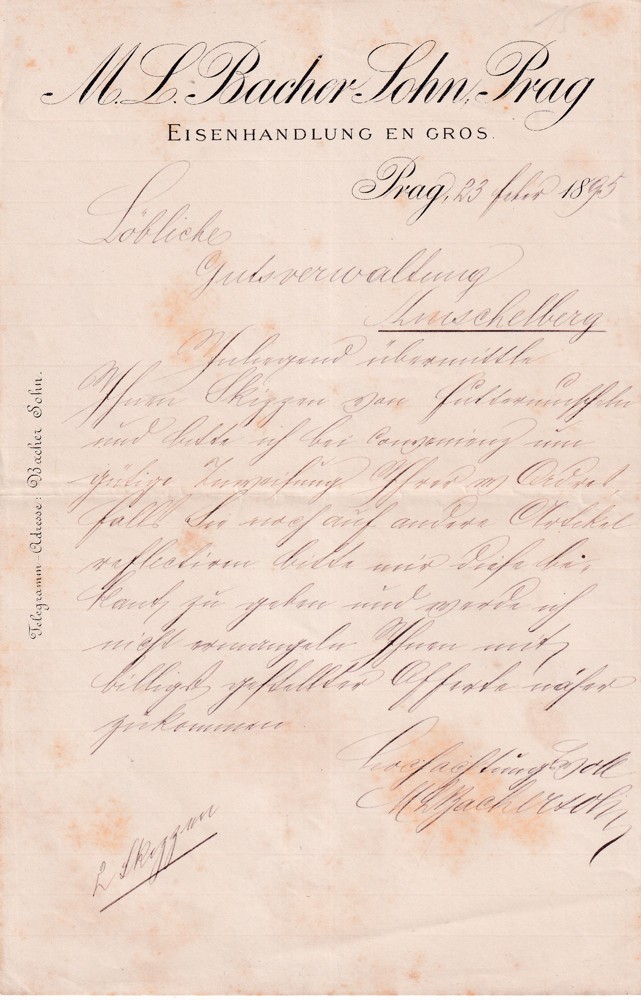 M. L. Bacher Sohn, Prag
EISENHANDLUNG EN GROS.
Prag, 23 feber 1895
Löbliche
Gutsverwaltung
Amschelberg
Anliegend übermittle
Ihnen Skizzen von Futtermuscheln
und bitte ich bei Convenienz um
gütige Zuweisung Ihrer w Ordre.
Falls Sie noch auf andere Artikel
reflectiren bitte mir diese be-
kant zu geben und werde ich
nicht ermangeln Ihnen mit
billigst gestellter Offerte näher
zukommen
Hochachtungsvoll
M L Bacher Sohn
2 Skizzen
Telegramm-Adresse: Bacher Sohn.